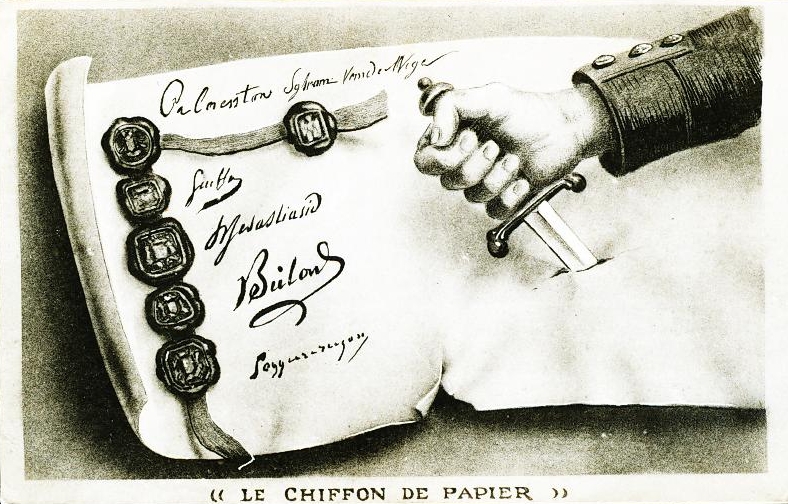 Palmerston Sylvain Van de Weyer
Senfft
H Sebastiani
Bülow
Pozzo di Borgo
« LE CHIFFON DE PAPIER »